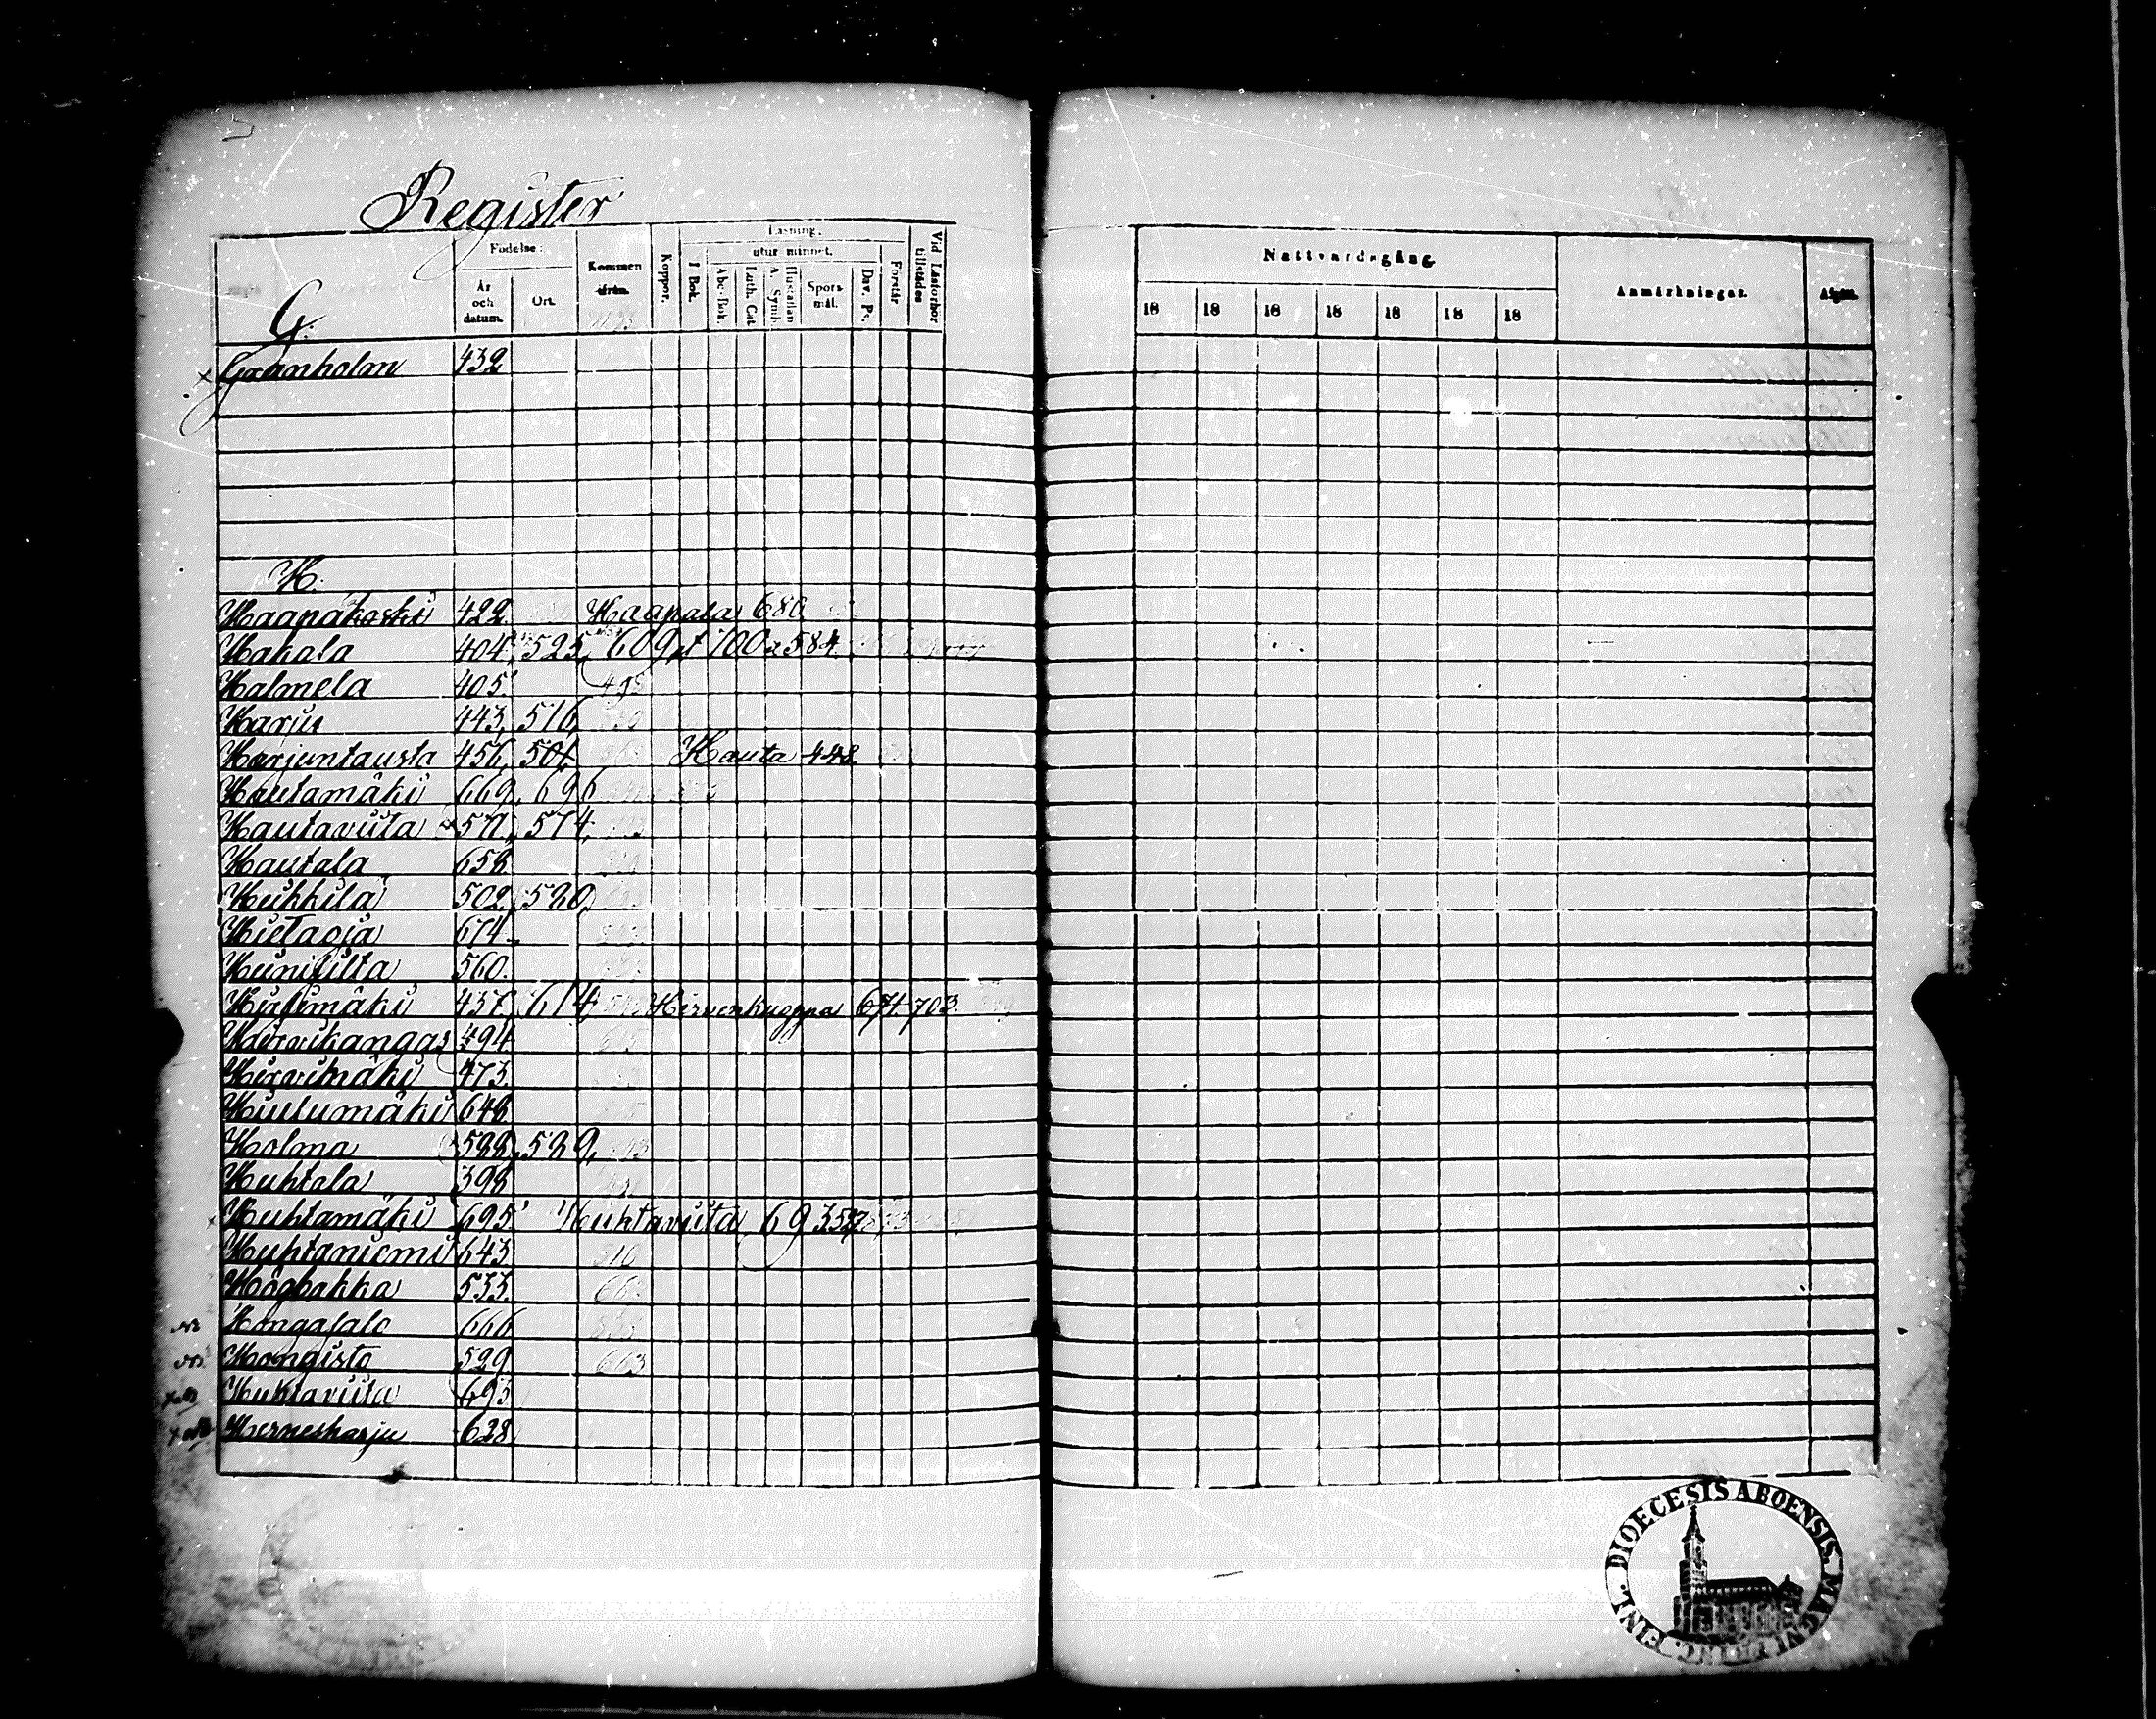 Register
Läsning.
Födelse:
utur minnet.
Kommen ifrån.
Koppor.
I Bok.
Abc-Bok.
Luth. Cat.
Hustaflan A. Symb.
Spörsmål.
Dav. Ps.
Förstår
Vid Läsförhör tillstädes
År och datum.
Ort.
Nattvardsgång.
Anmärkningar.
Afgått.
18 18 18 18 18 18 18
G.
x Granholm 432
H.
Haapakoski 422. Haapala 680
Hakala 404. 525. 609 584
Halmela 405.
Harju 443. 516.
Harjuntausta 456. 501 Hauta 448.
Hautamäki 669. 696
Hautaviita 571. 574.
Hautala 658.
Heikkilä 502. 520.
Hietaoja 674.
560.
614 Hirvenkuoppa 671. 703.
Hirvikangas 494.
Hirvimäki 473.
Hiulumäki 648.
Holma 529.
Huhtala 398
x Huhtamäki 695. Huhtaviita 693
Huhtaniemi 643.
Högbakka 533.
Hongasalo 666
Hongisto 529 663
Huhtaviita 693
Herneskarju 628
DIOECESIS ABOENSIS. MAGNI PRINC. FINL.